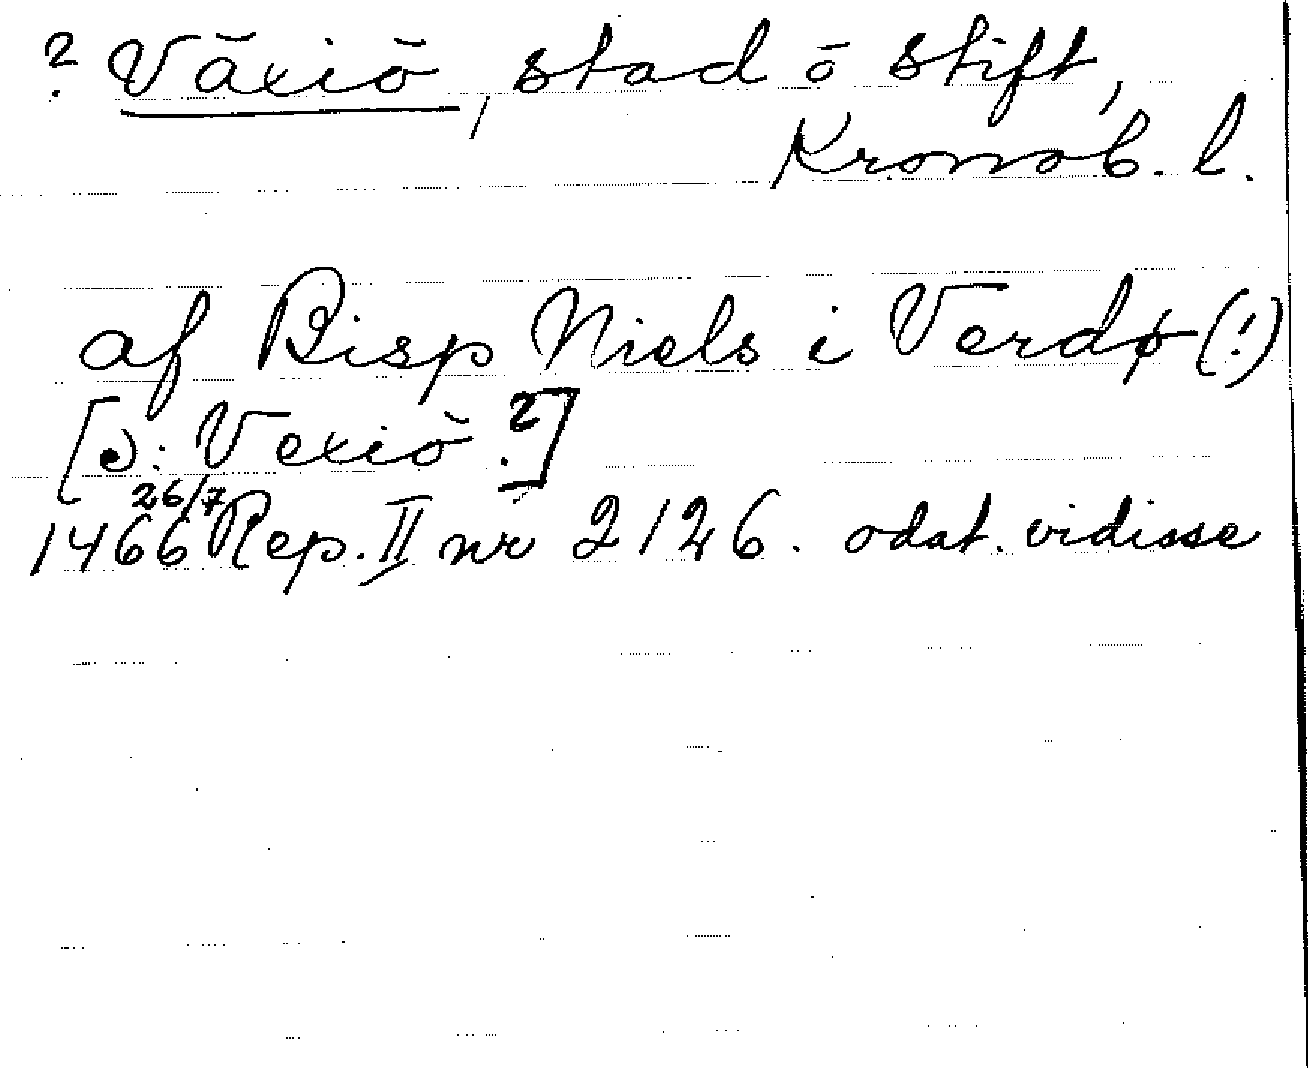 ? Växiö, stad o stift,
Kronob. l.
af Bisp Niels i Verdø (!)
[ɔ: Vexiö ?]
26/7
1466 Rep. II nr 2126. odat. vidisse